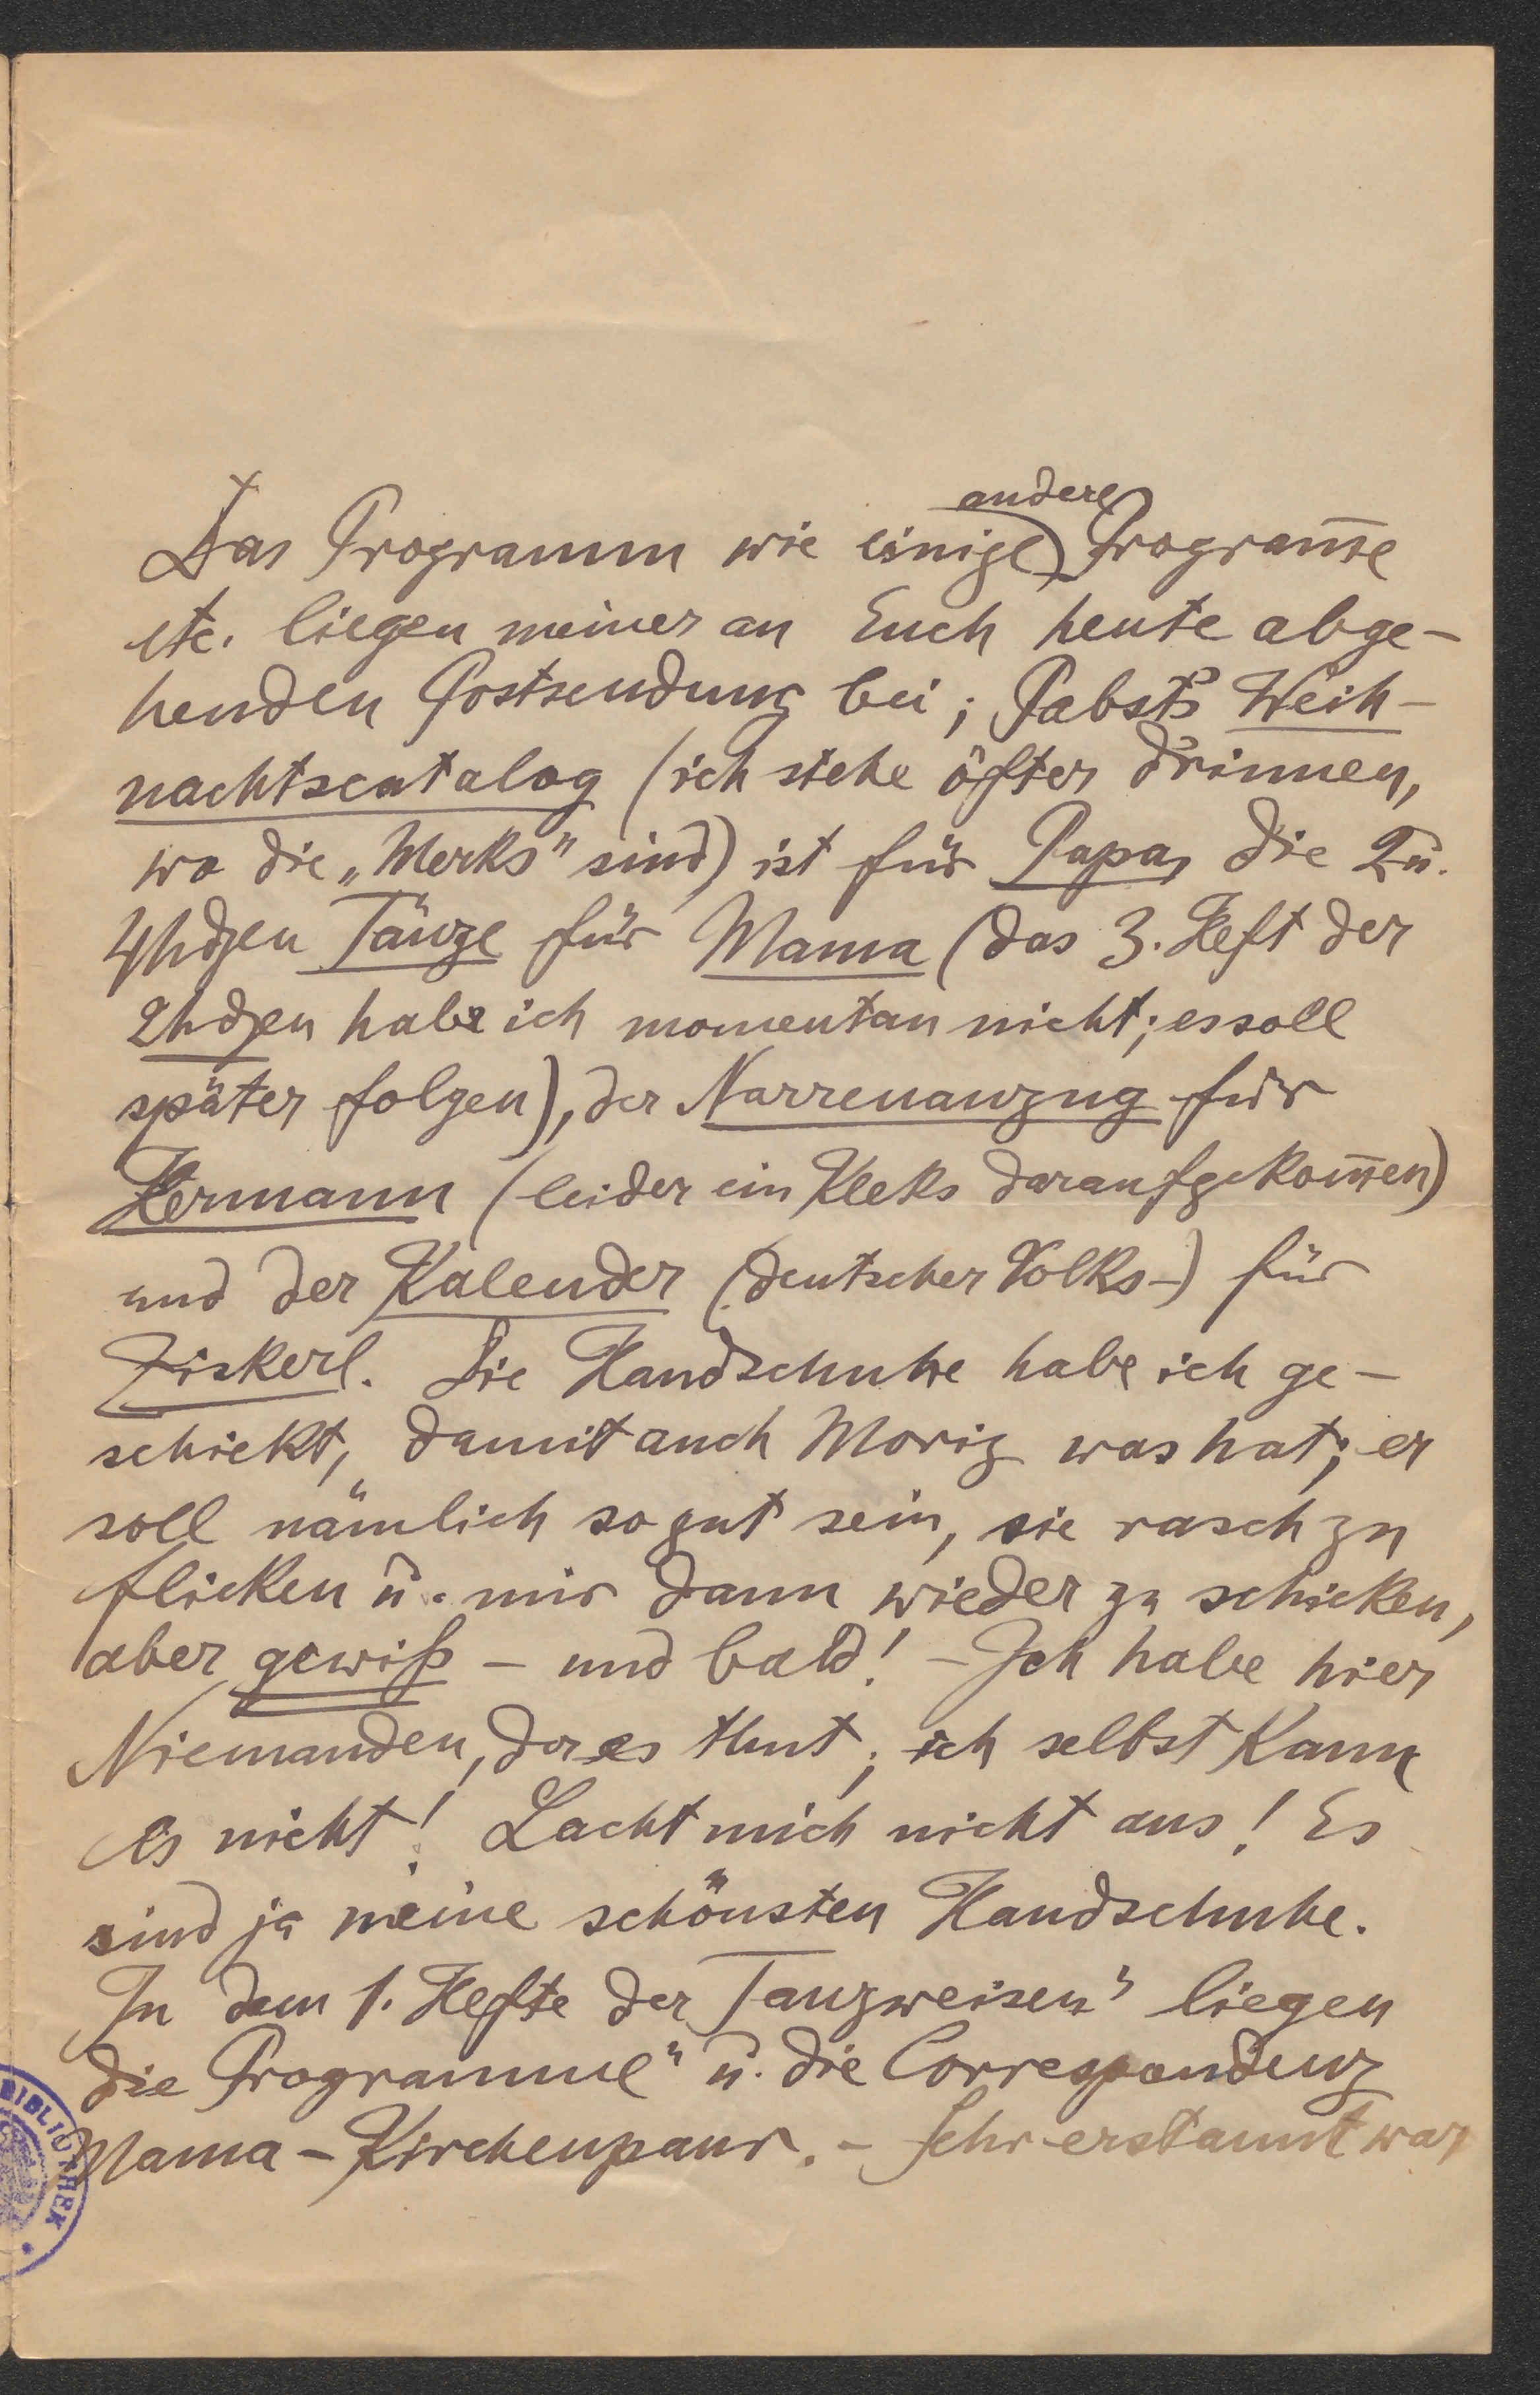 andere
Das Programm wie einige Programm̄e
etc. liegen meiner an Euch heute abge-
henden Postsendung bei; Pabst's Weih-
nachtscatalog (ich stehe öfter drinnen,
wo die „Merks" sind) ist für Papa, die 2 u.
4hdgen Tänze für Mama (das 3. Heft der
2hdgen habe ich momentan nicht; es soll
später folgen), der Narrenanzug für
Hermann (leider ein Kleks daraufgekom̄en)
und der Kalender (deutscher Volks-) für
Ziskerl. Die Handschuhe habe ich ge-
schickt, damit auch Moriz was hat; er
soll nämlich so gut sein, sie rasch zu
flicken u. mir dann wieder zu schicken,
aber gewiß – und bald! – Ich habe hier
Niemanden, der es thut; ich selbst kann
es nicht! Lacht mich nicht aus! Es
sind ja meine schönsten Handschuhe.
In dem 1. Hefte der „Tanzweisen" liegen
die Programme" u. die Correspondenz
Mama – Kirchenpaur. – Sehr erstaunt war
BIBLIOTHEK